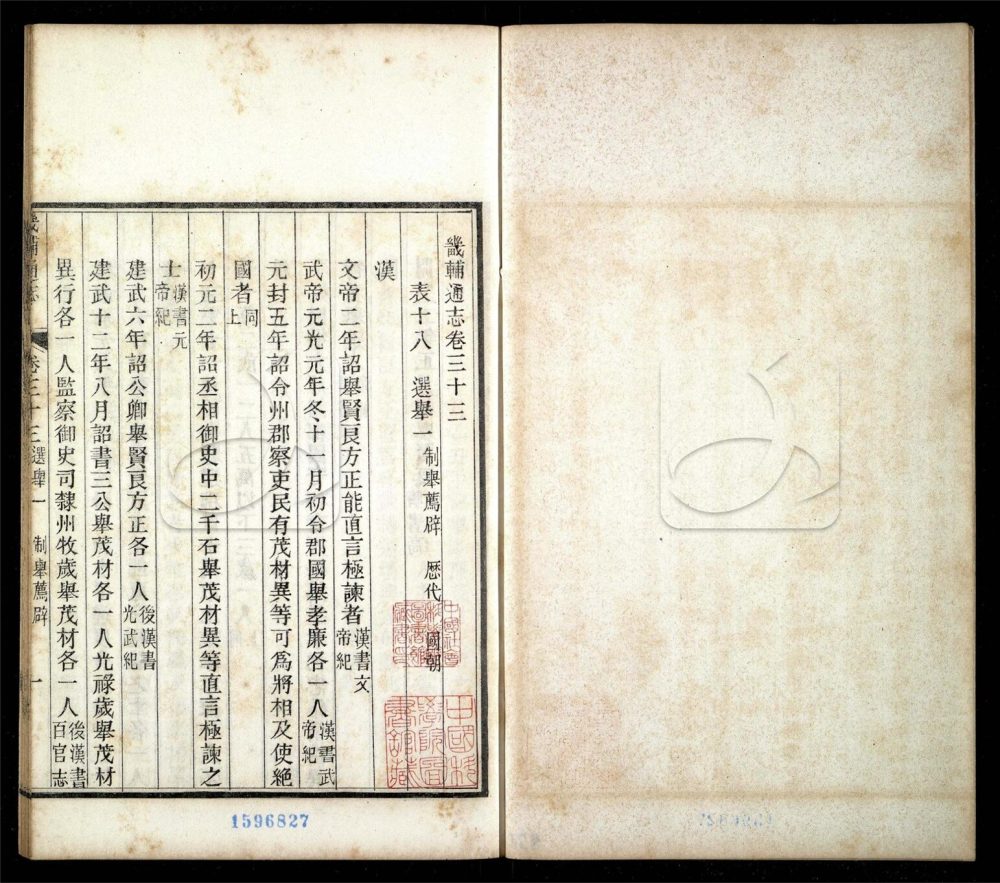 畿輔通志卷三十三
表十八 選舉一 制舉薦辟 歷代 國朝
漢
文帝二年詔舉賢良方正能直言極諫者漢書文帝紀
武帝元光元年冬十一月初令郡國舉孝廉各一人漢書武帝紀
元封五年詔令州郡察吏民有茂材異等可為將相及使絕
國者同上
初元二年詔丞相御史中二千石舉茂材異等直言極諫之
士漢書元帝紀
建武六年詔公卿舉賢良方正各一人後漢書光武紀
建武十二年八月詔書三公舉茂材各一人光祿歲舉茂材
異行各一人監察御史司隸州牧歲舉茂材各一人後漢書百官志
畿輔通志 卷三十三 選舉一 制舉薦辟 一
中國科學院圖書館藏
1596827